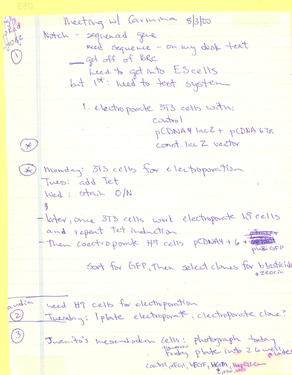 Meeting w/ Gavinma 8/3/00
Notch - sequenced gene
need sequence - on my desk text
get off of BRC
need to get into ES cells
but 1st: need to test system
1. electroporate 3T3 cells with:
control
pCDNA4 lacZ + pCDNA 6TR
const. lacZ vector
Monday: 3T3 cells for electroporation
Tues: add Tet
Wed: stain O/N
- later, once 3T3 cells work electroporate H9 cells
and repeat Tet induction
- Then coelectroporate H9 cells pCDNA4 + 6 +
GFP
Sort for GFP, Then select clones for blasticidin
+ zeocin
need H9 cells for electroporation
2 Tuesday: 1 plate electroporate, electroporate clone?
3 Juanito's mesendoderm cells: photograph today
Friday plate into 2 6 well plates
control, FGF, VEGF,